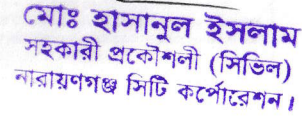 মোঃ হাসানুল ইসলাম
সহকারী প্রকৌশলী (সিভিল)
নারায়ণগঞ্জ সিটি কর্পোরেশন।